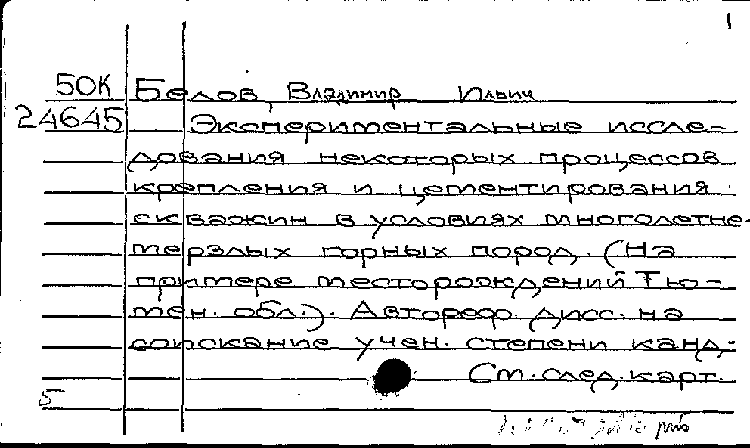 1
50К Белов, Владимир Ильич
24645 Экспериментальные иссле-
дования некоторых процессов
крепления и цементирования
скважин в условиях многолетне-
мерзлых горных пород. (На
примере месторождений Тю-
мен. обл.). Автореф. дисс. на
соискание учен. степени канд.
См. след. карт.
5